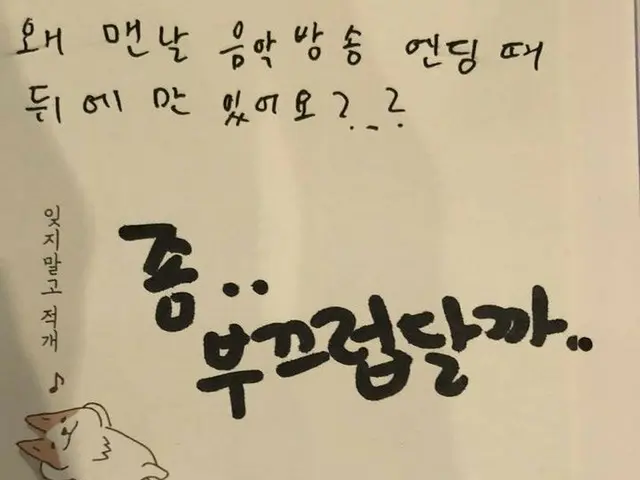 왜 맨날 음악방송 엔딩때
뒤에만 있어요?_?
좀..
부끄럽달까..
잊지말고 적개 ♪